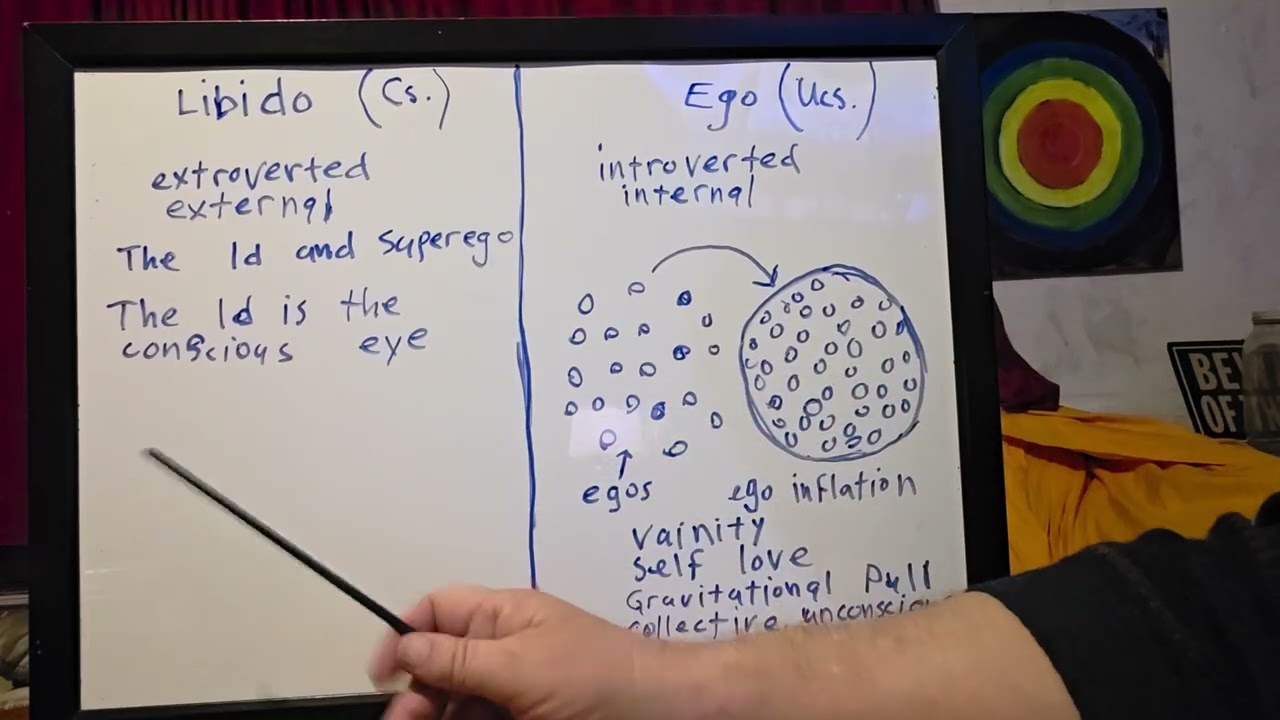 Libido (Cs.)
extroverted
external
The Id and Superego
The Id is the
conscious eye
Ego (Ucs.)
introverted
internal
egos
ego inflation
vainity
self love
Gravitational Pull
collective
OF